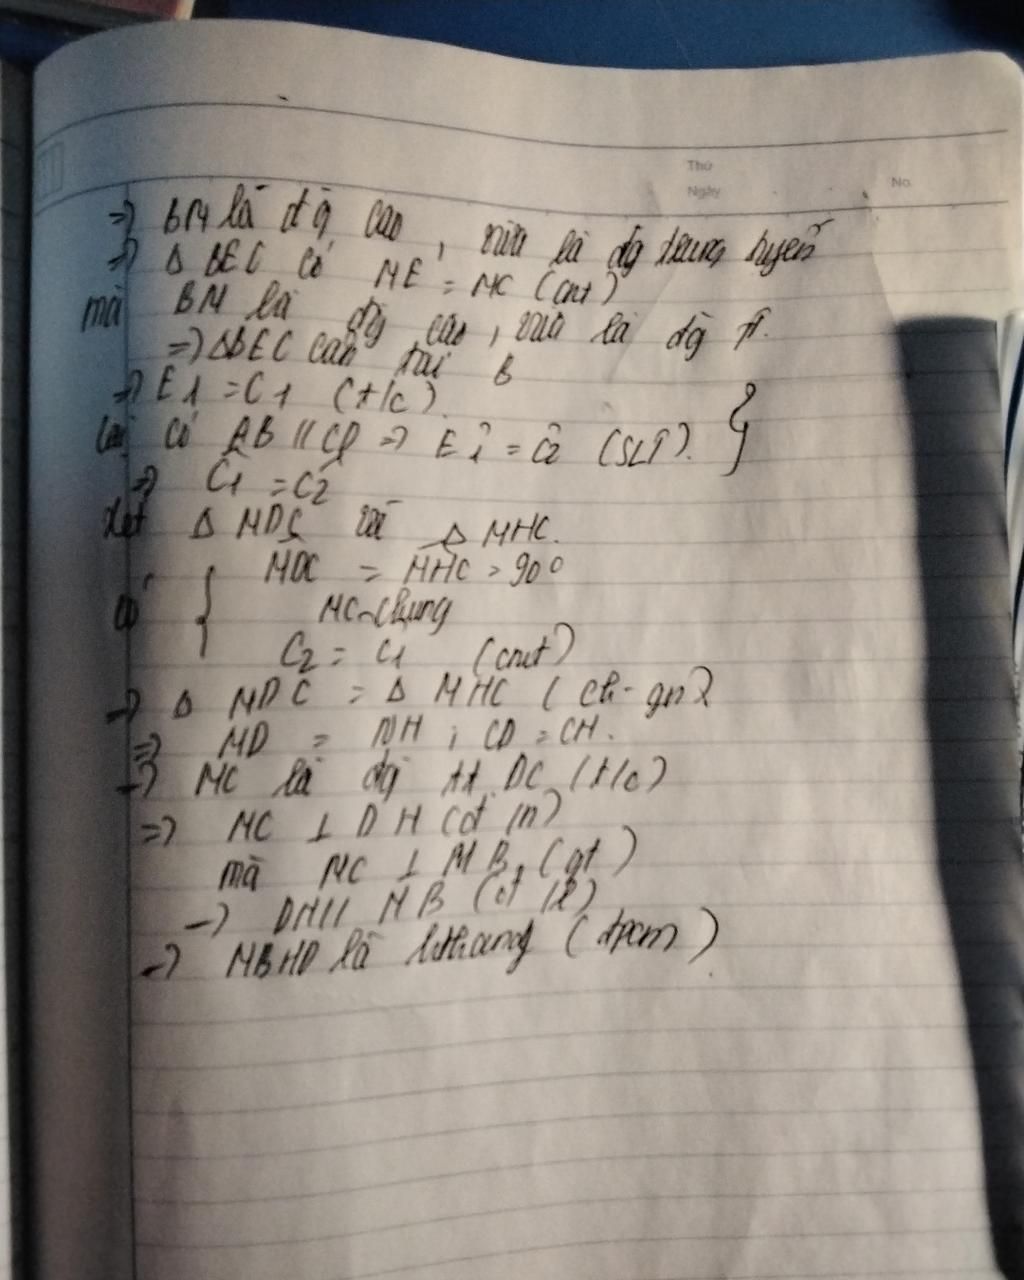 Thứ
Ngày
No.
=) BM là đg cao , vừa là đg trung tuyến
=) Δ BEC có ME = MC (cmt)
mà BM là đg cao , vừa là đg
=) ΔBEC cân tại B
=) E1 = C1 (t/c)
Lại có AB // CD =) E1 = C2 (SLT) }
=) C1 = C2
Xét Δ MDC và Δ MHC.
MDC = MHC = 90°
có { MC chung
C2 = C1 (cmt)
-) Δ MDC = Δ MHC (ch-gn)
=) MD = MH ; CD = CH.
-) MC là đg tt DC (t/c)
=) MC ⊥ DH (đ/n)
mà MC ⊥ MB (gt)
-) DH // MB
-) MBHD là hthang (đpcm)